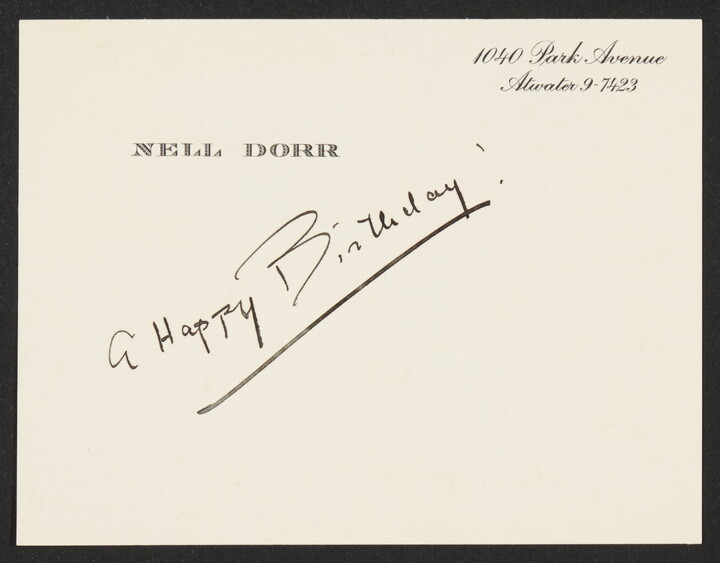 1040 Park Avenue
Atwater 9-7423
NELL DORR
a Happy Birthday!